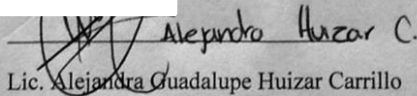 Alejandra Huizar C.
Lic. Alejandra Guadalupe Huizar Carrillo